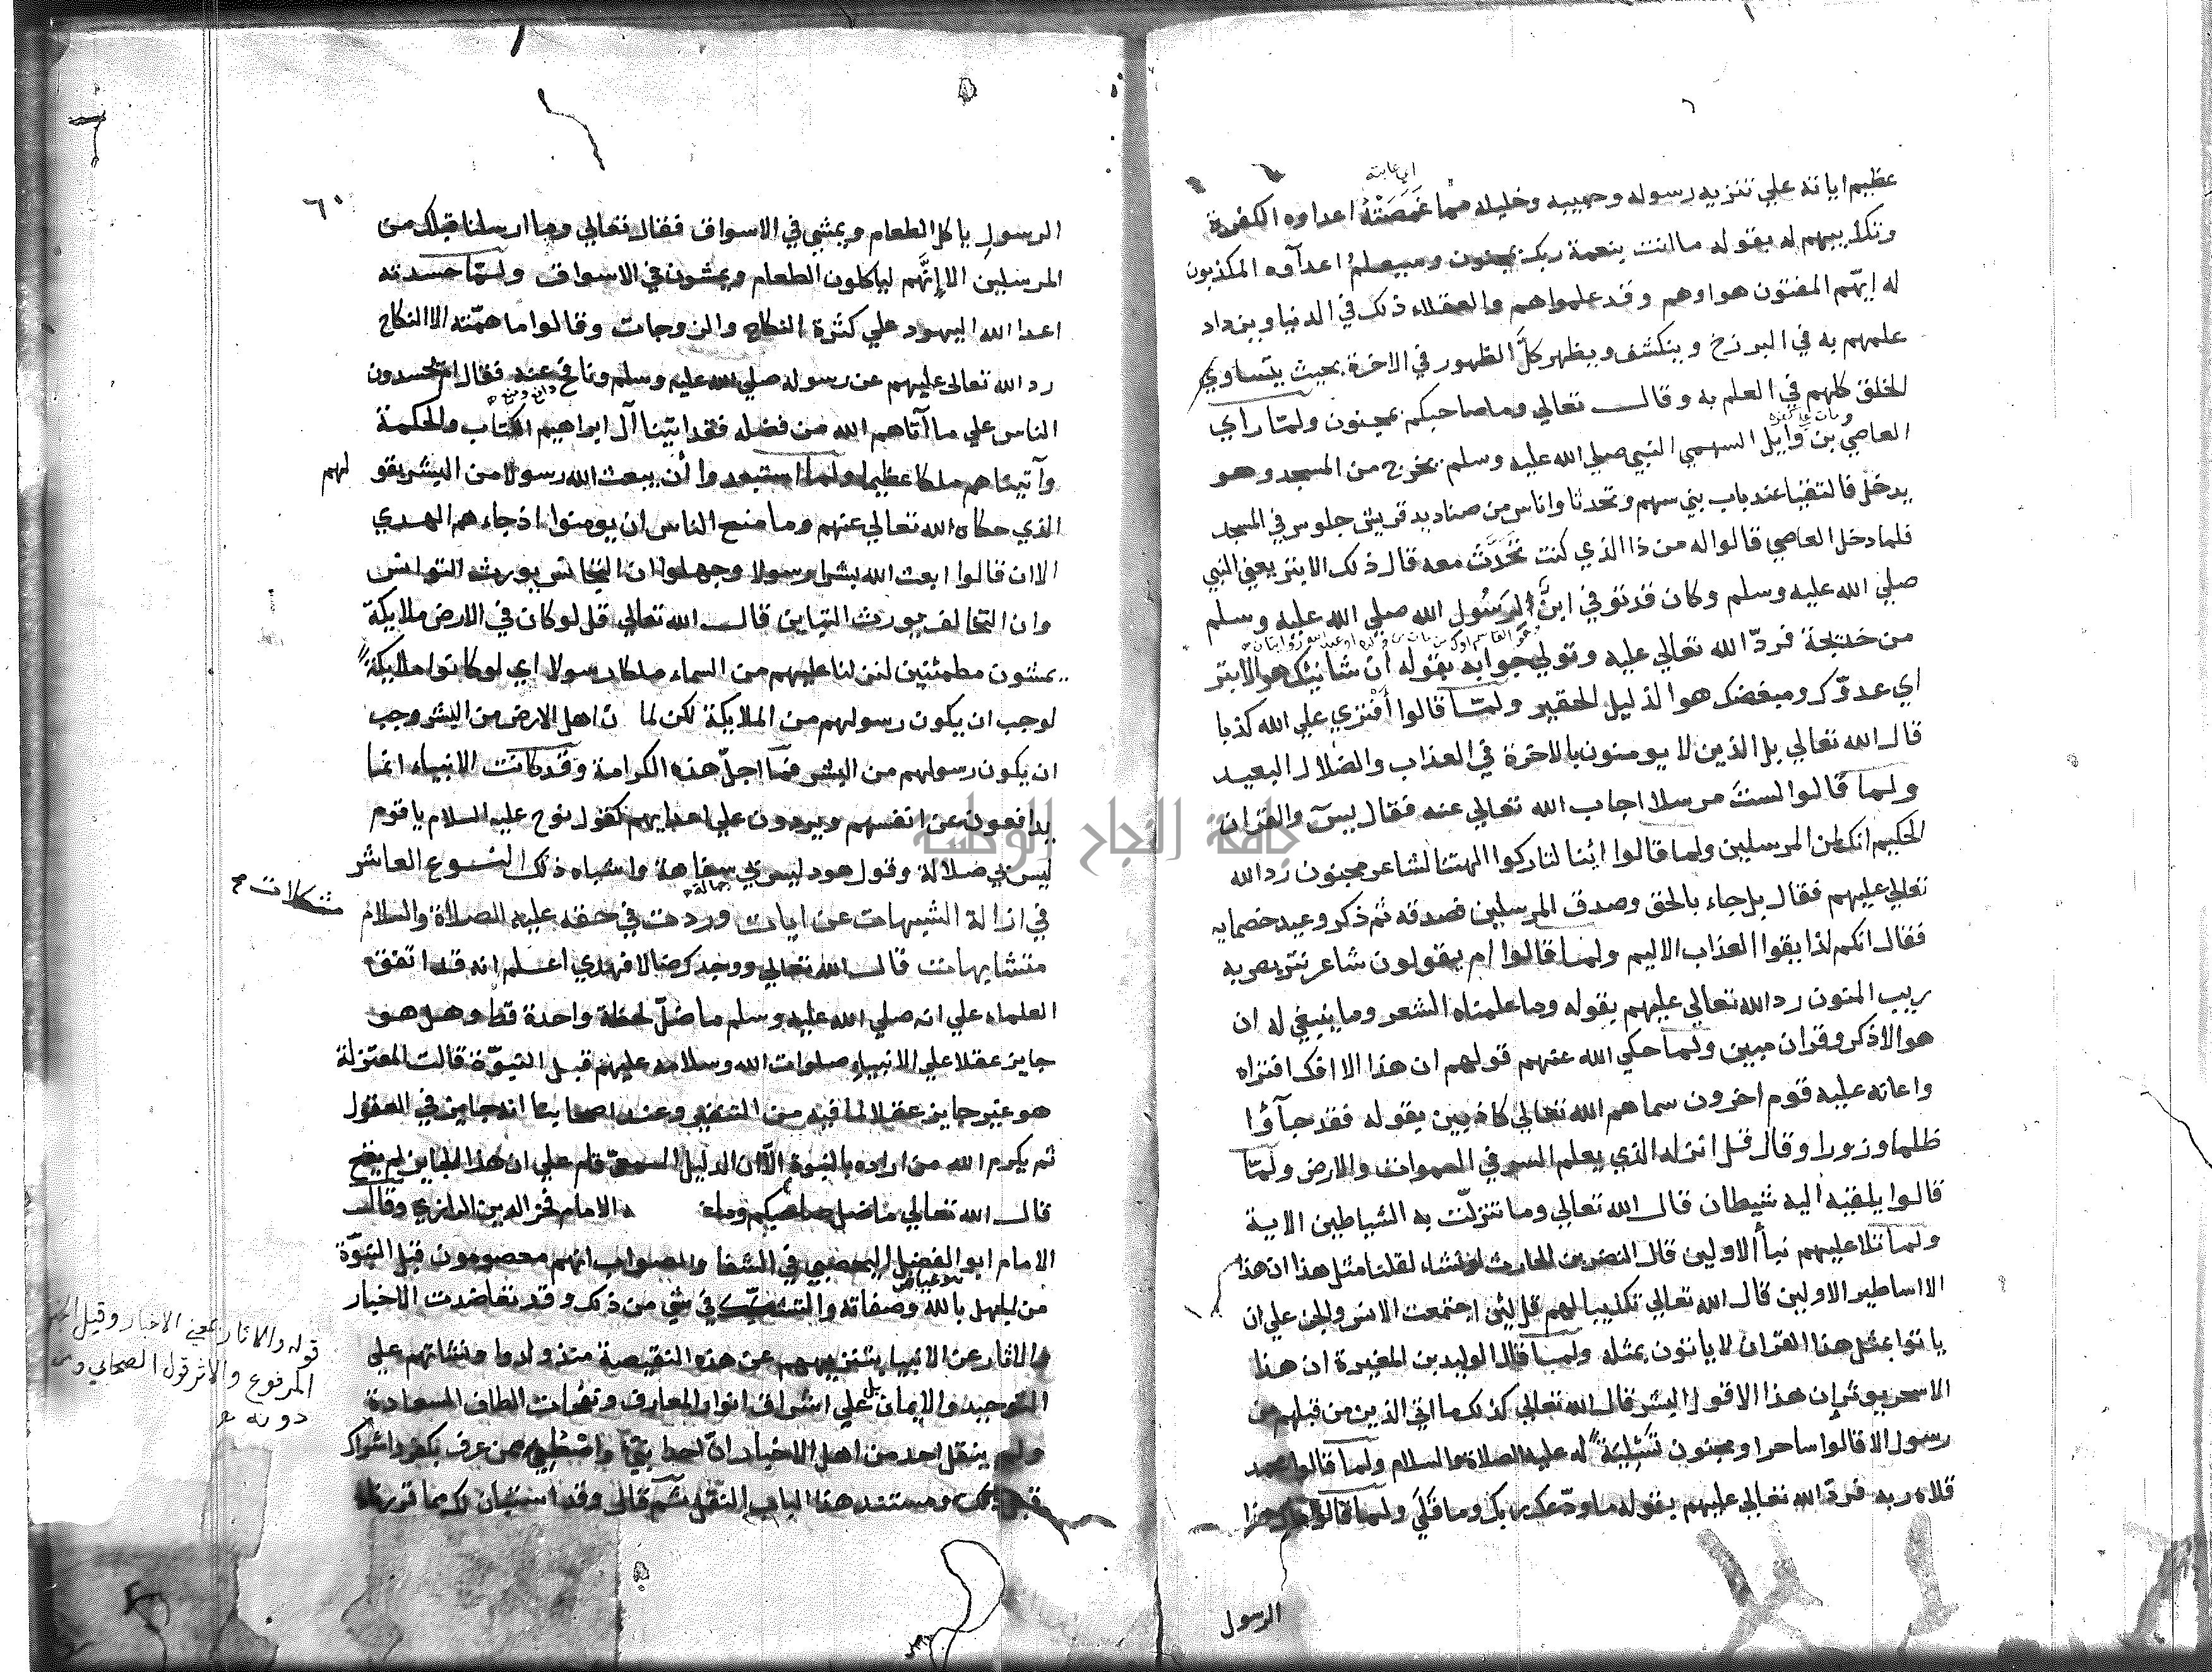 اي عابته
عظيم اياته علي تنزيه رسوله وحبيبه وخليله مما غمصته اعداوه الكفرة
وتكذيبهم له بقوله ما انت بنعمة ربك بمجنون وسيعلم اعدآوه المكذبون
له ايهم المفتون هو اوهم وقد علموا هم والعقلاء ذلك في الدنيا ويزداد
علمهم به في البرزخ وينكشف ويظهر كل الظهور في الاخرة بحيث يتساوي
الخلق كلهم في العلم به وقال تعالي وما صاحبكم بمجنون ولما راي
العاصي بن وايل السهمي النبي صلي الله عليه وسلم يخرج من المسجد وهو
يدخل فالتقيا عند باب بني سهم وتحدثا واناس من صناديد قريش جلوس في المسجد
فلما دخل العاصي قالوا له من ذا الذي كنت تحدث معه قال ذلك الابتر يعني النبي
صلي الله عليه وسلم وكان قد توفي ابن لرسول الله صلي الله عليه وسلم
من خديجة فرد الله تعالي عليه وتولي جوابه بقوله ان شانئك هو الابتر
اي عدوك ومبغضك هو الذليل الحقير ولما قالوا أفتري علي الله كذبا
قال الله تعالي بل الذين لا يومنون بالاخرة في العذاب والضلال البعيد
ولما قالوا لست مرسلا اجاب الله تعالي عنه فقال يس والقران
الحكيم انك لمن المرسلين ولما قالوا ائنا لتاركوا الهتنا لشاعر مجنون رد الله
تعالي عليهم فقال بل جاء بالحق وصدق المرسلين فصدقه ثم ذكر وعيد خصمايه
فقال انكم لذايقوا العذاب الاليم ولما قالوا ام يقولون شاعر نتربص به
ريب المنون رد الله تعالي عليهم بقوله وما علمناه الشعر وما ينبغي له ان
هو الا ذكر وقران مبين ولما حكي الله عنهم قولهم ان هذا الا افك افتراه
واعانه عليه قوم اخرون سماهم الله تعالي كاذبين بقوله فقد جآؤا
ظلما وزورا وقال قل انزله الذي يعلم السر في السموات والارض ولما
قالوا يلقيه اليه شيطان قال الله تعالي وما تنزلت به الشياطين الاية
ولما تلا عليهم نبأ الاولين قال النضر بن الحارث لو نشاء لقلنا مثل هذا ان هذا
الا اساطير الاولين قال الله تعالي تكذيبا لهم قل لئن اجتمعت الانس والجن علي ان
ياتوا بمثل هذا القران لا ياتون بمثله ولما قال الوليد بن المغيرة ان هذا
الا سحر يوثر ان هذا الا قول البشر قال الله تعالي كذلك ما اتي الذين من قبلهم من
رسول الا قالوا ساحر او مجنون تسلية له عليه الصلاة والسلام ولما قالوا محمد
قلاه ربه فرد الله تعالي عليهم بقوله ما ودعك ربك وما قلي ولما قالوا مال هذا
الرسول
٦٠
الرسول ياكل الطعام ويمشي في الاسواق فقال تعالي وما ارسلنا قبلك من
المرسلين الا إنهم لياكلون الطعام ويمشون في الاسواق ولما حسدته
اعدا الله اليهود علي كثرة النكاح والزوجات وقالوا ما همته الا النكاح
رد الله تعالي عليهم عن رسوله صلي الله عليه وسلم ونافح عنه فقال ام يحسدون
الناس علي ما آتاهم الله من فضله فقد اتينا آل ابراهيم الكتاب والحكمة
وآتيناهم ملكا عظيما ولما استبعدوا أن يبعث الله رسولا من البشر بقولهم
الذي حكاه الله تعالي عنهم وما منع الناس ان يومنوا اذ جاءهم الهدي
الا ان قالوا ابعث الله بشرا رسولا وجهلوا ان التجانس يورث التوانس
وان التخالف يورث التباين قال الله تعالي قل لو كان في الارض ملايكة
يمشون مطمئنين لنزلنا عليهم من السماء ملكا رسولا اي لو كانوا ملايكة
لوجب ان يكون رسولهم من الملايكة لكن لما ن اهل الارض من البشر وجب
ان يكون رسولهم من البشر فما اجل هذه الكرامة وقد كانت الانبياء انما
يدافعون عن انفسهم ويردون علي اعدايهم كقول نوح عليه السلام يا قوم
ليس بي ضلالة وقول هود ليس بي سفاهة واشباه ذلك النوع العاشر
جهالة
في ازالة الشبهات عن ايات وردت في حقه عليه الصلاة والسلام
مشكلات
متشابهات قال الله تعالي ووجدك ضالا فهدي اعلم انه قد اتفق
العلماء علي انه صلي الله عليه وسلم ما ضل لحظة واحدة قط وهل هو
جايز عقلا علي الانبياء صلوات الله وسلامه عليهم قبل النبوة قالت المعتزلة
هو غير جايز عقلا لما فيه من التنفير وعند اصحابنا انه جايز في العقول
ثم يكرم الله من اراده بالنبوة الا ان الدليل السمعي قام علي ان هذا الجايز لم يقع
قال الله تعالي ما ضل صاحبكم وما الامام فخر الدين الرازي وقال
الامام ابو الفضل اليحصبي في الشفا والصواب انهم معصومون قبل النبوة
من الجهل بالله وصفاته والتشكك في شي من ذلك وقد تعاضدت الاخبار
والاثار عن الانبيا بتنزيههم عن هذه النقيصة منذ ولدوا ونشاتهم علي
التوحيد والايمان بل علي اشراق انوار المعارف ونفحات الطاف السعادة
ولم ينقل احد من اهل الاخبار ان احدا نبئ واصطفي ممن عرف بكفر واشراك
قبل ذلك ومستند هذا الباب النقل ثم قال وقد استبان لك بما قررناه
قوله والاثار بمعني الاخبار وقيل
المرفوع والاثر قول الصحابي
دونه
جامعة النجاح الوطنية